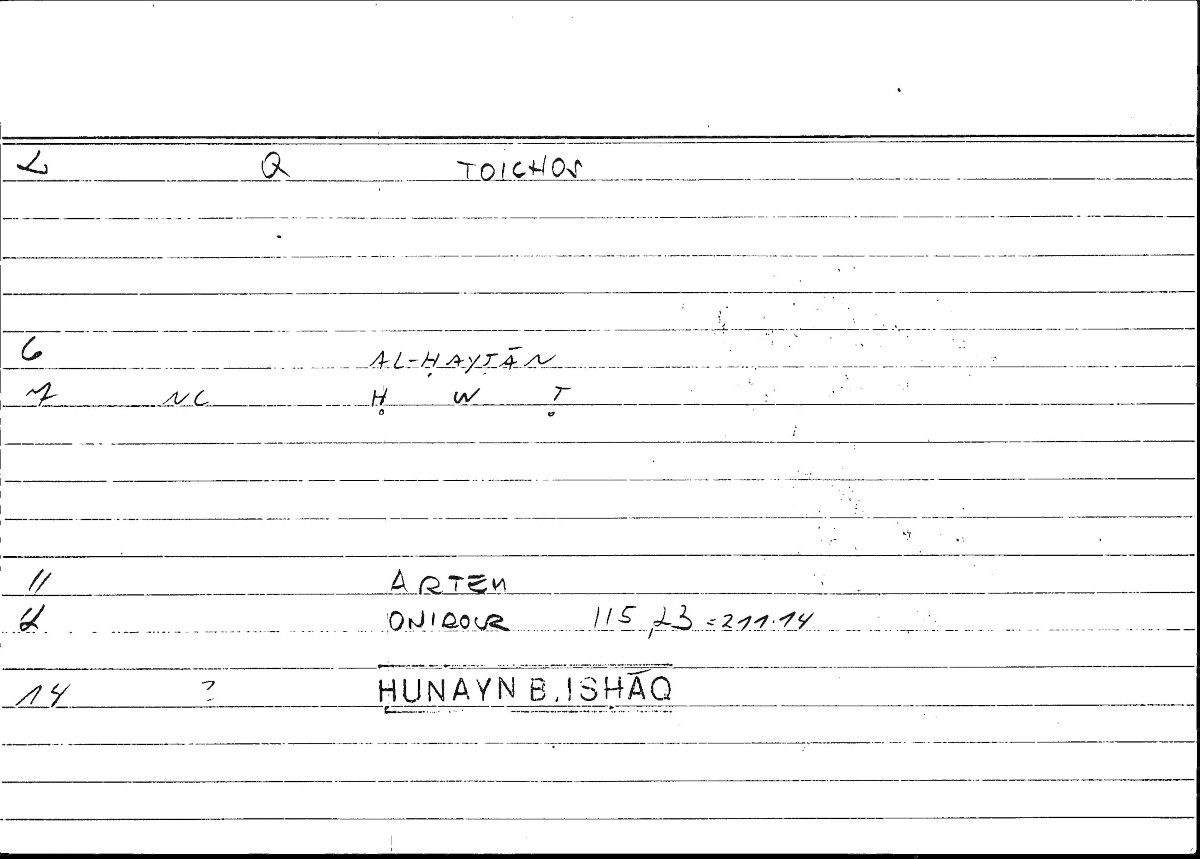 2 Q TOICHOS
6 AL-ḤAYṬĀN
7 NC Ḥ W Ṭ
11 ARTEM
12 ONIROCR 115,23 = 211.14
14 ? ḤUNAYN B. ISḤĀQ